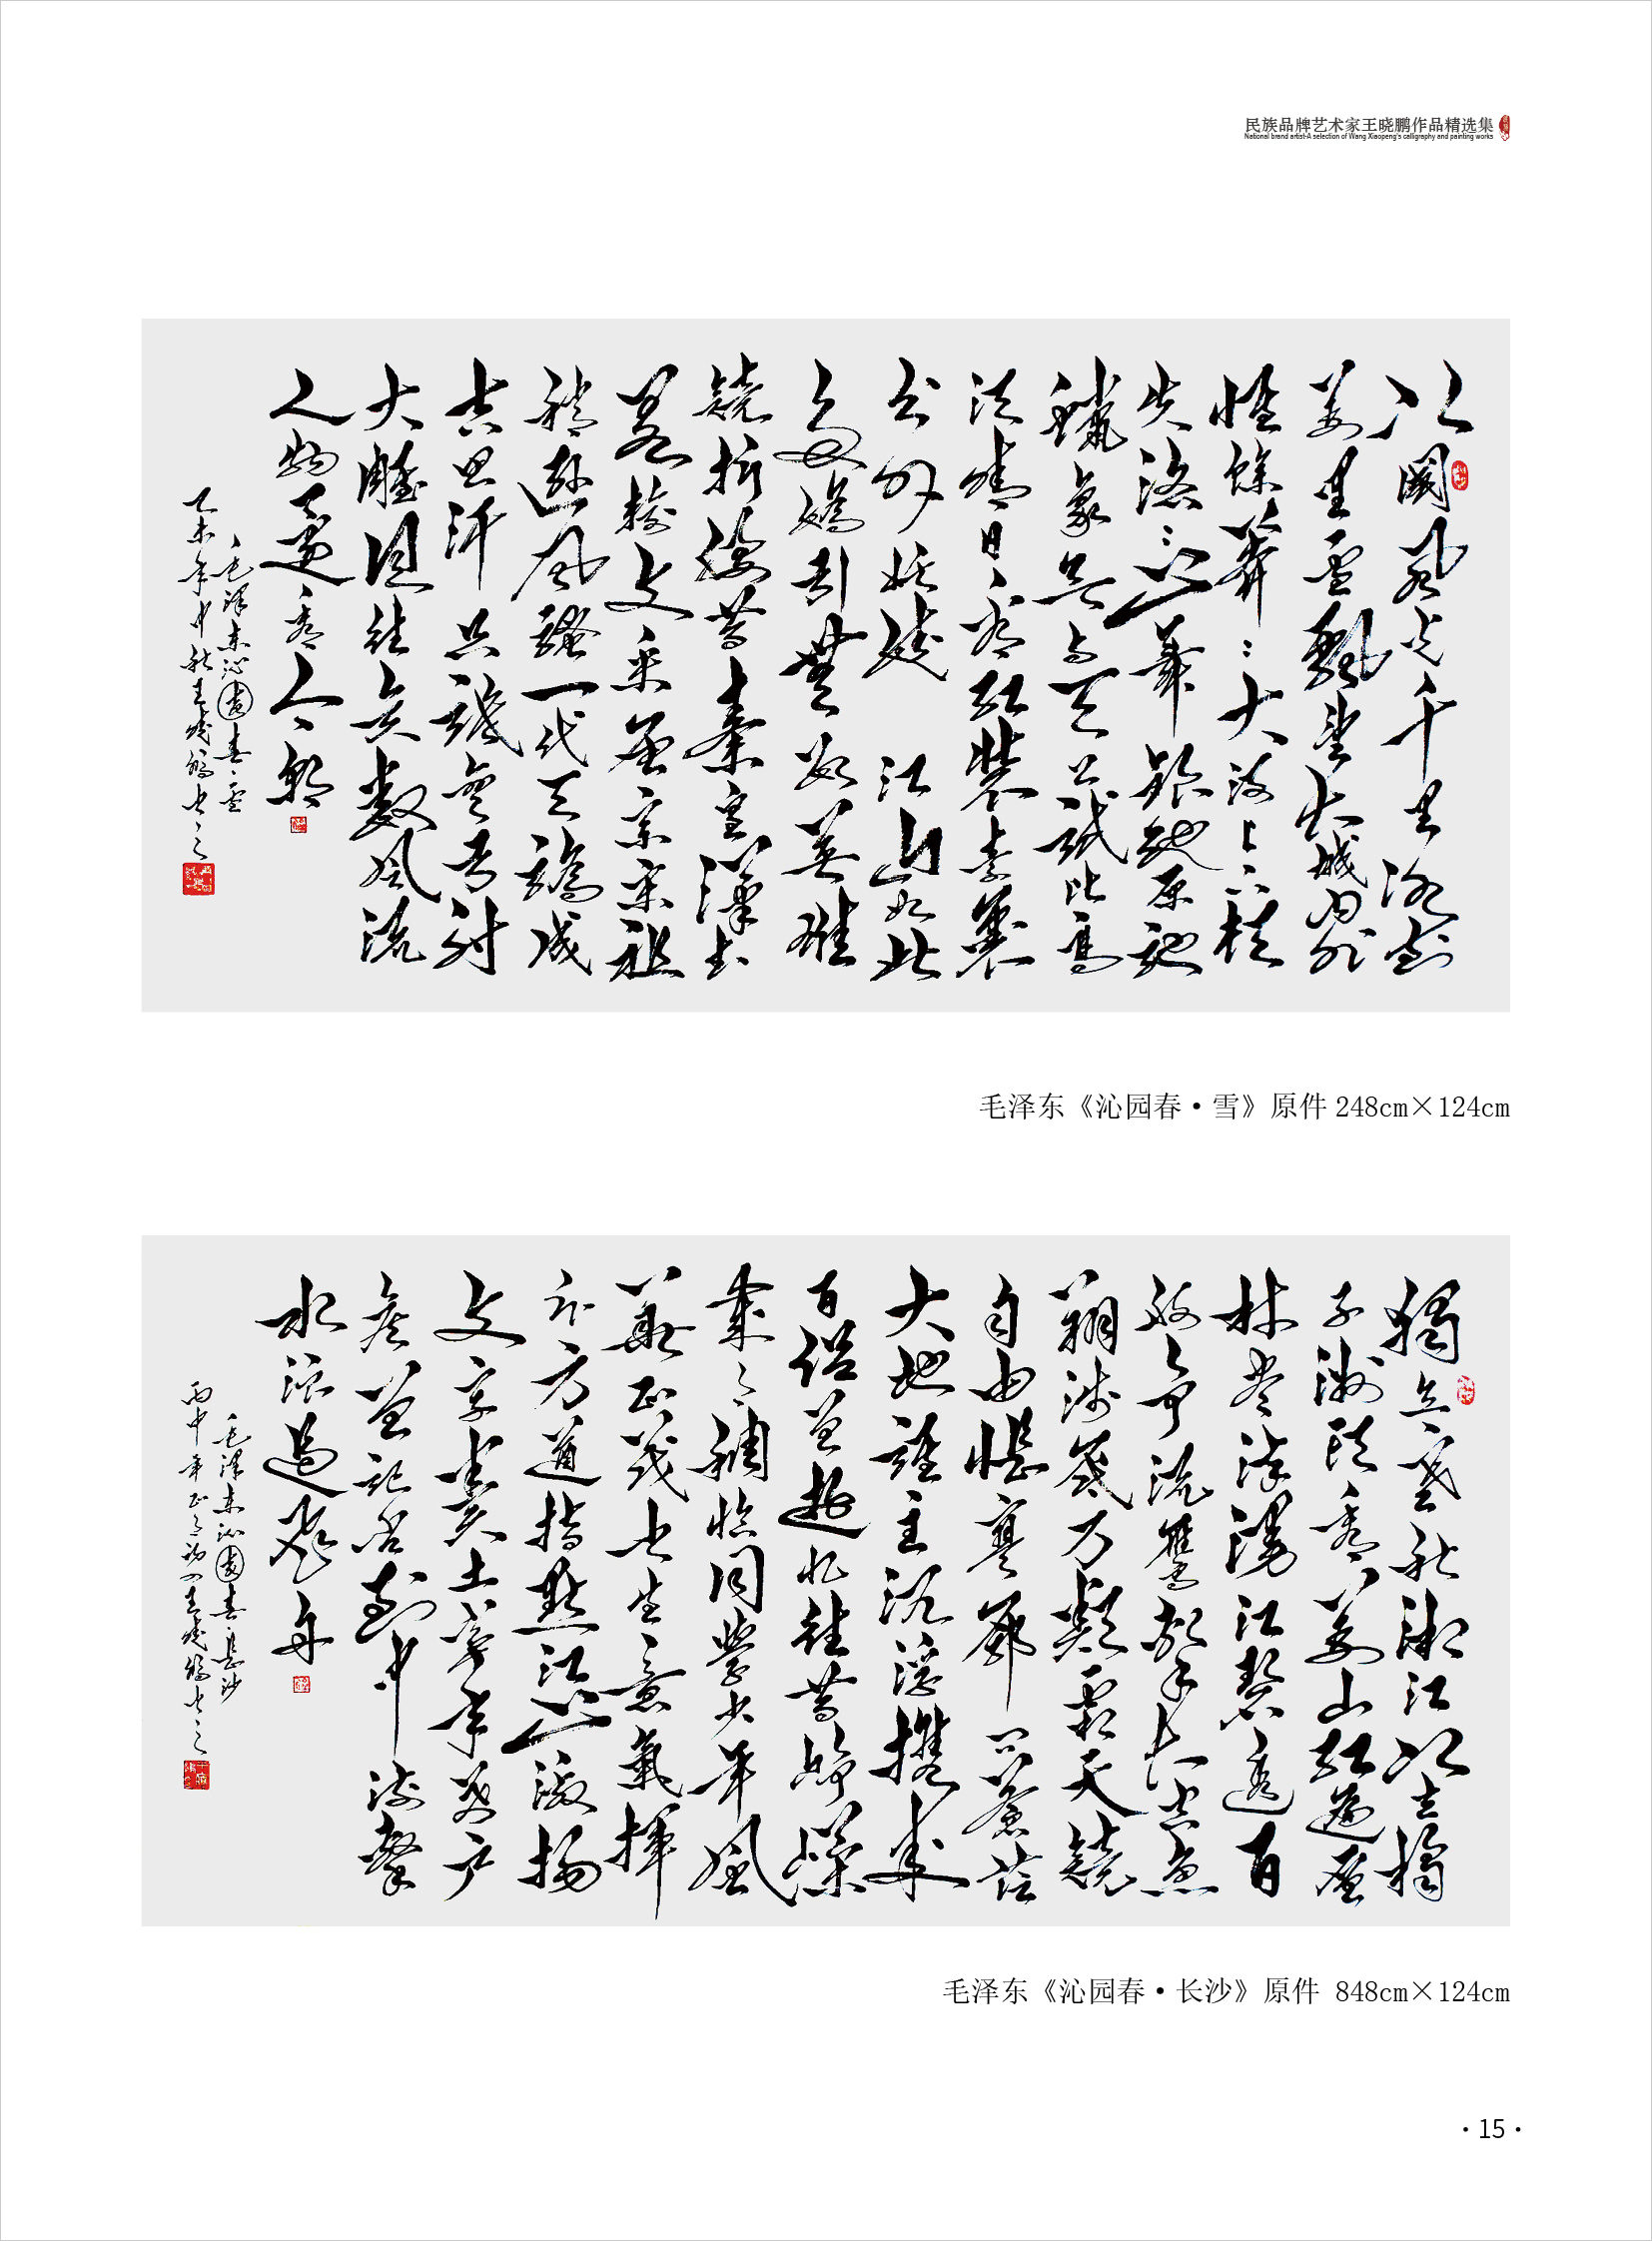 民族品牌艺术家王晓鹏作品精选集
National brand artist-A selection of Wang Xiaopeng's calligraphy and painting works
北國風光千里冰封
萬里雪飄望长城内外
惟餘莽々大河上下頓
失滔々山舞銀蛇原驰
蠟象欲与天公試比高
须晴日看红裝素裹
分外妖娆江山如此
多嬌引無数英雄
競折腰昔秦皇漢武
略输文采唐宗宋祖
稍逊風骚一代天驕成
吉思汗只識弯弓射
大雕俱往矣数風流
人物還看今朝
毛泽东沁園春·雪
乙未年中秋王晓鹏书之
毛泽东《沁园春·雪》原件 248cm×124cm
獨立寒秋湘江北去橘
子洲頭看萬山红遍层
林尽染漫江碧透百
舸争流鷹击长空鱼
翔浅底万類霜天競
自由怅寥廓问蒼茫
大地谁主沉浮携来
百侣曾遊忆往昔峥嵘
歲月稠恰同學少年風
華正茂书生意氣揮
斥方遒指點江山激扬
文字粪土当年萬户
侯曾记否到中流擊
水浪遏飛舟
毛泽东沁園春·長沙
丙申年正月初四王晓鹏书之
毛泽东《沁园春·长沙》原件 848cm×124cm
·15·